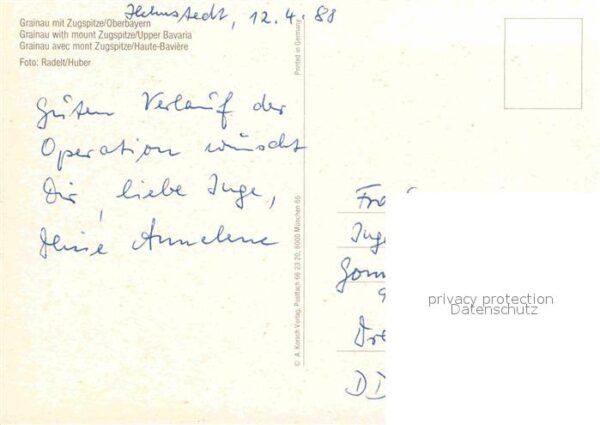 Helmstedt, 12.4.88
Grainau mit Zugspitze/Oberbayern
Grainau with mount Zugspitze/Upper Bavaria
Grainau avec mont Zugspitze/Haute-Bavière
Foto: Radelt/Huber
Guten Verlauf der
Operation wünscht
Dir, liebe Inge,
Deine Annelene
Printed in Germany
© A. Korsch Verlag, Postfach 66 23 20, 8000 München 66
Fra
Inge
Dre
DD
privacy protection
Datenschutz